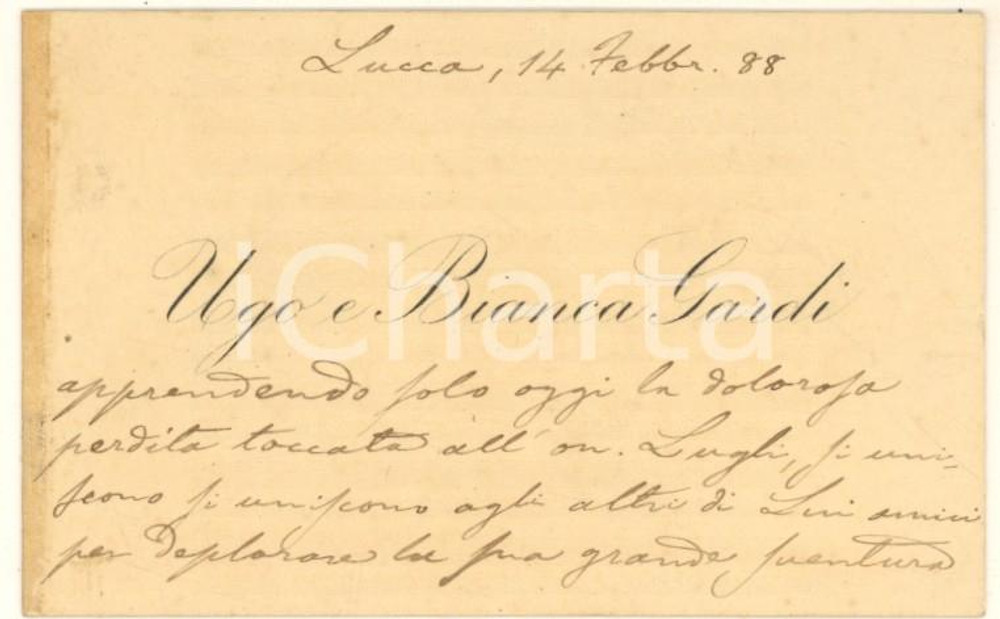 Lucca, 14 Febbr. 88
Ugo e Bianca Gardi
iCharta
apprendendo solo oggi la dolorosa
perdita toccata all' on. Lugli, si uni-
scono si uniscono agli altri di Lui amici
per deplorare la sua grande sventura